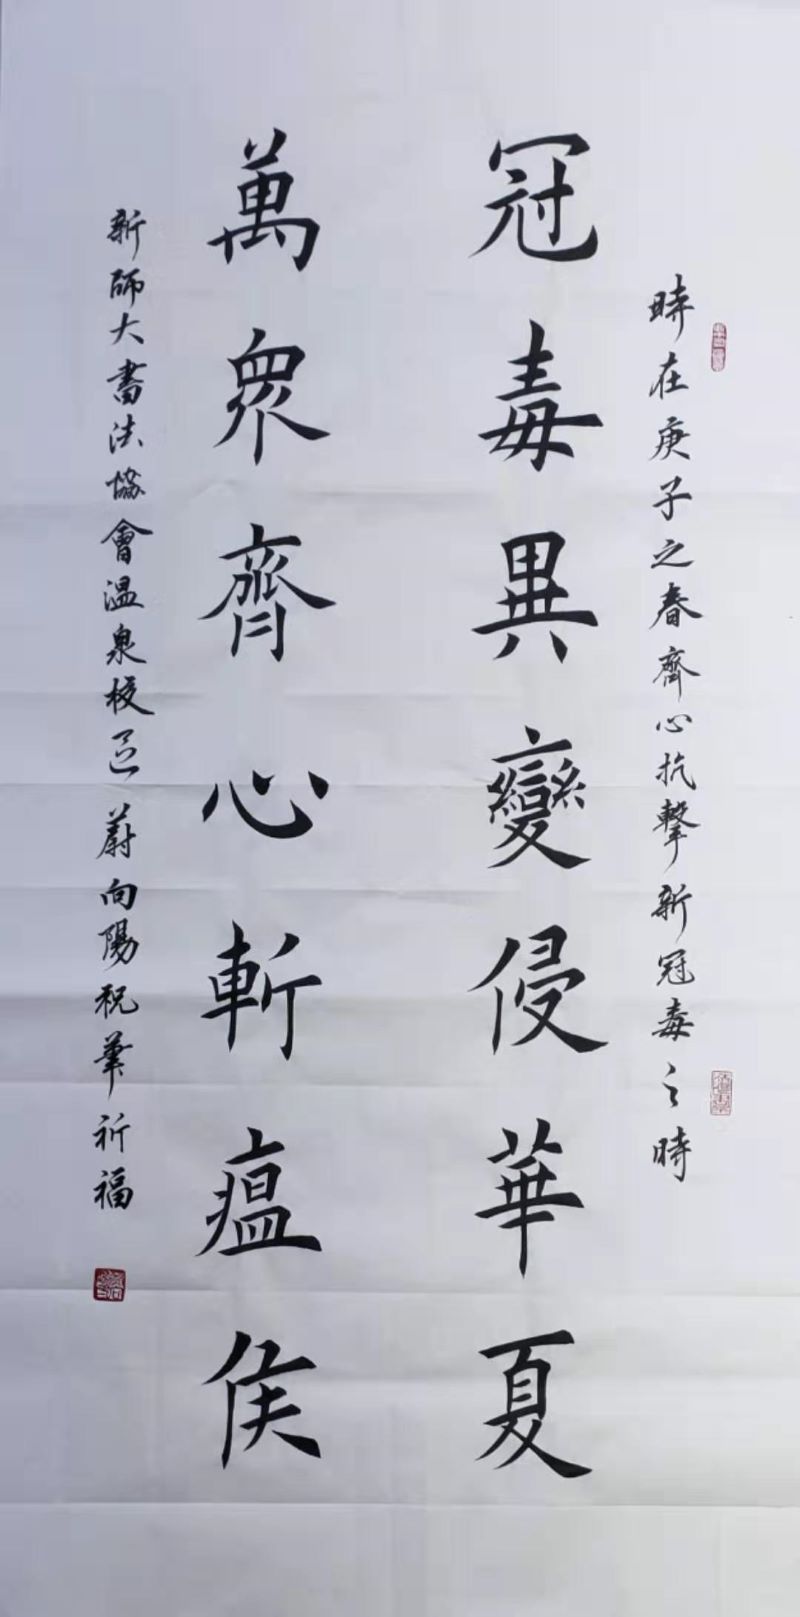 時在庚子之春齊心抗擊新冠毒之時
冠毒異變侵華夏
萬衆齊心斬瘟侯
新師大書法協會溫泉校區蔚向陽祝筆祈福